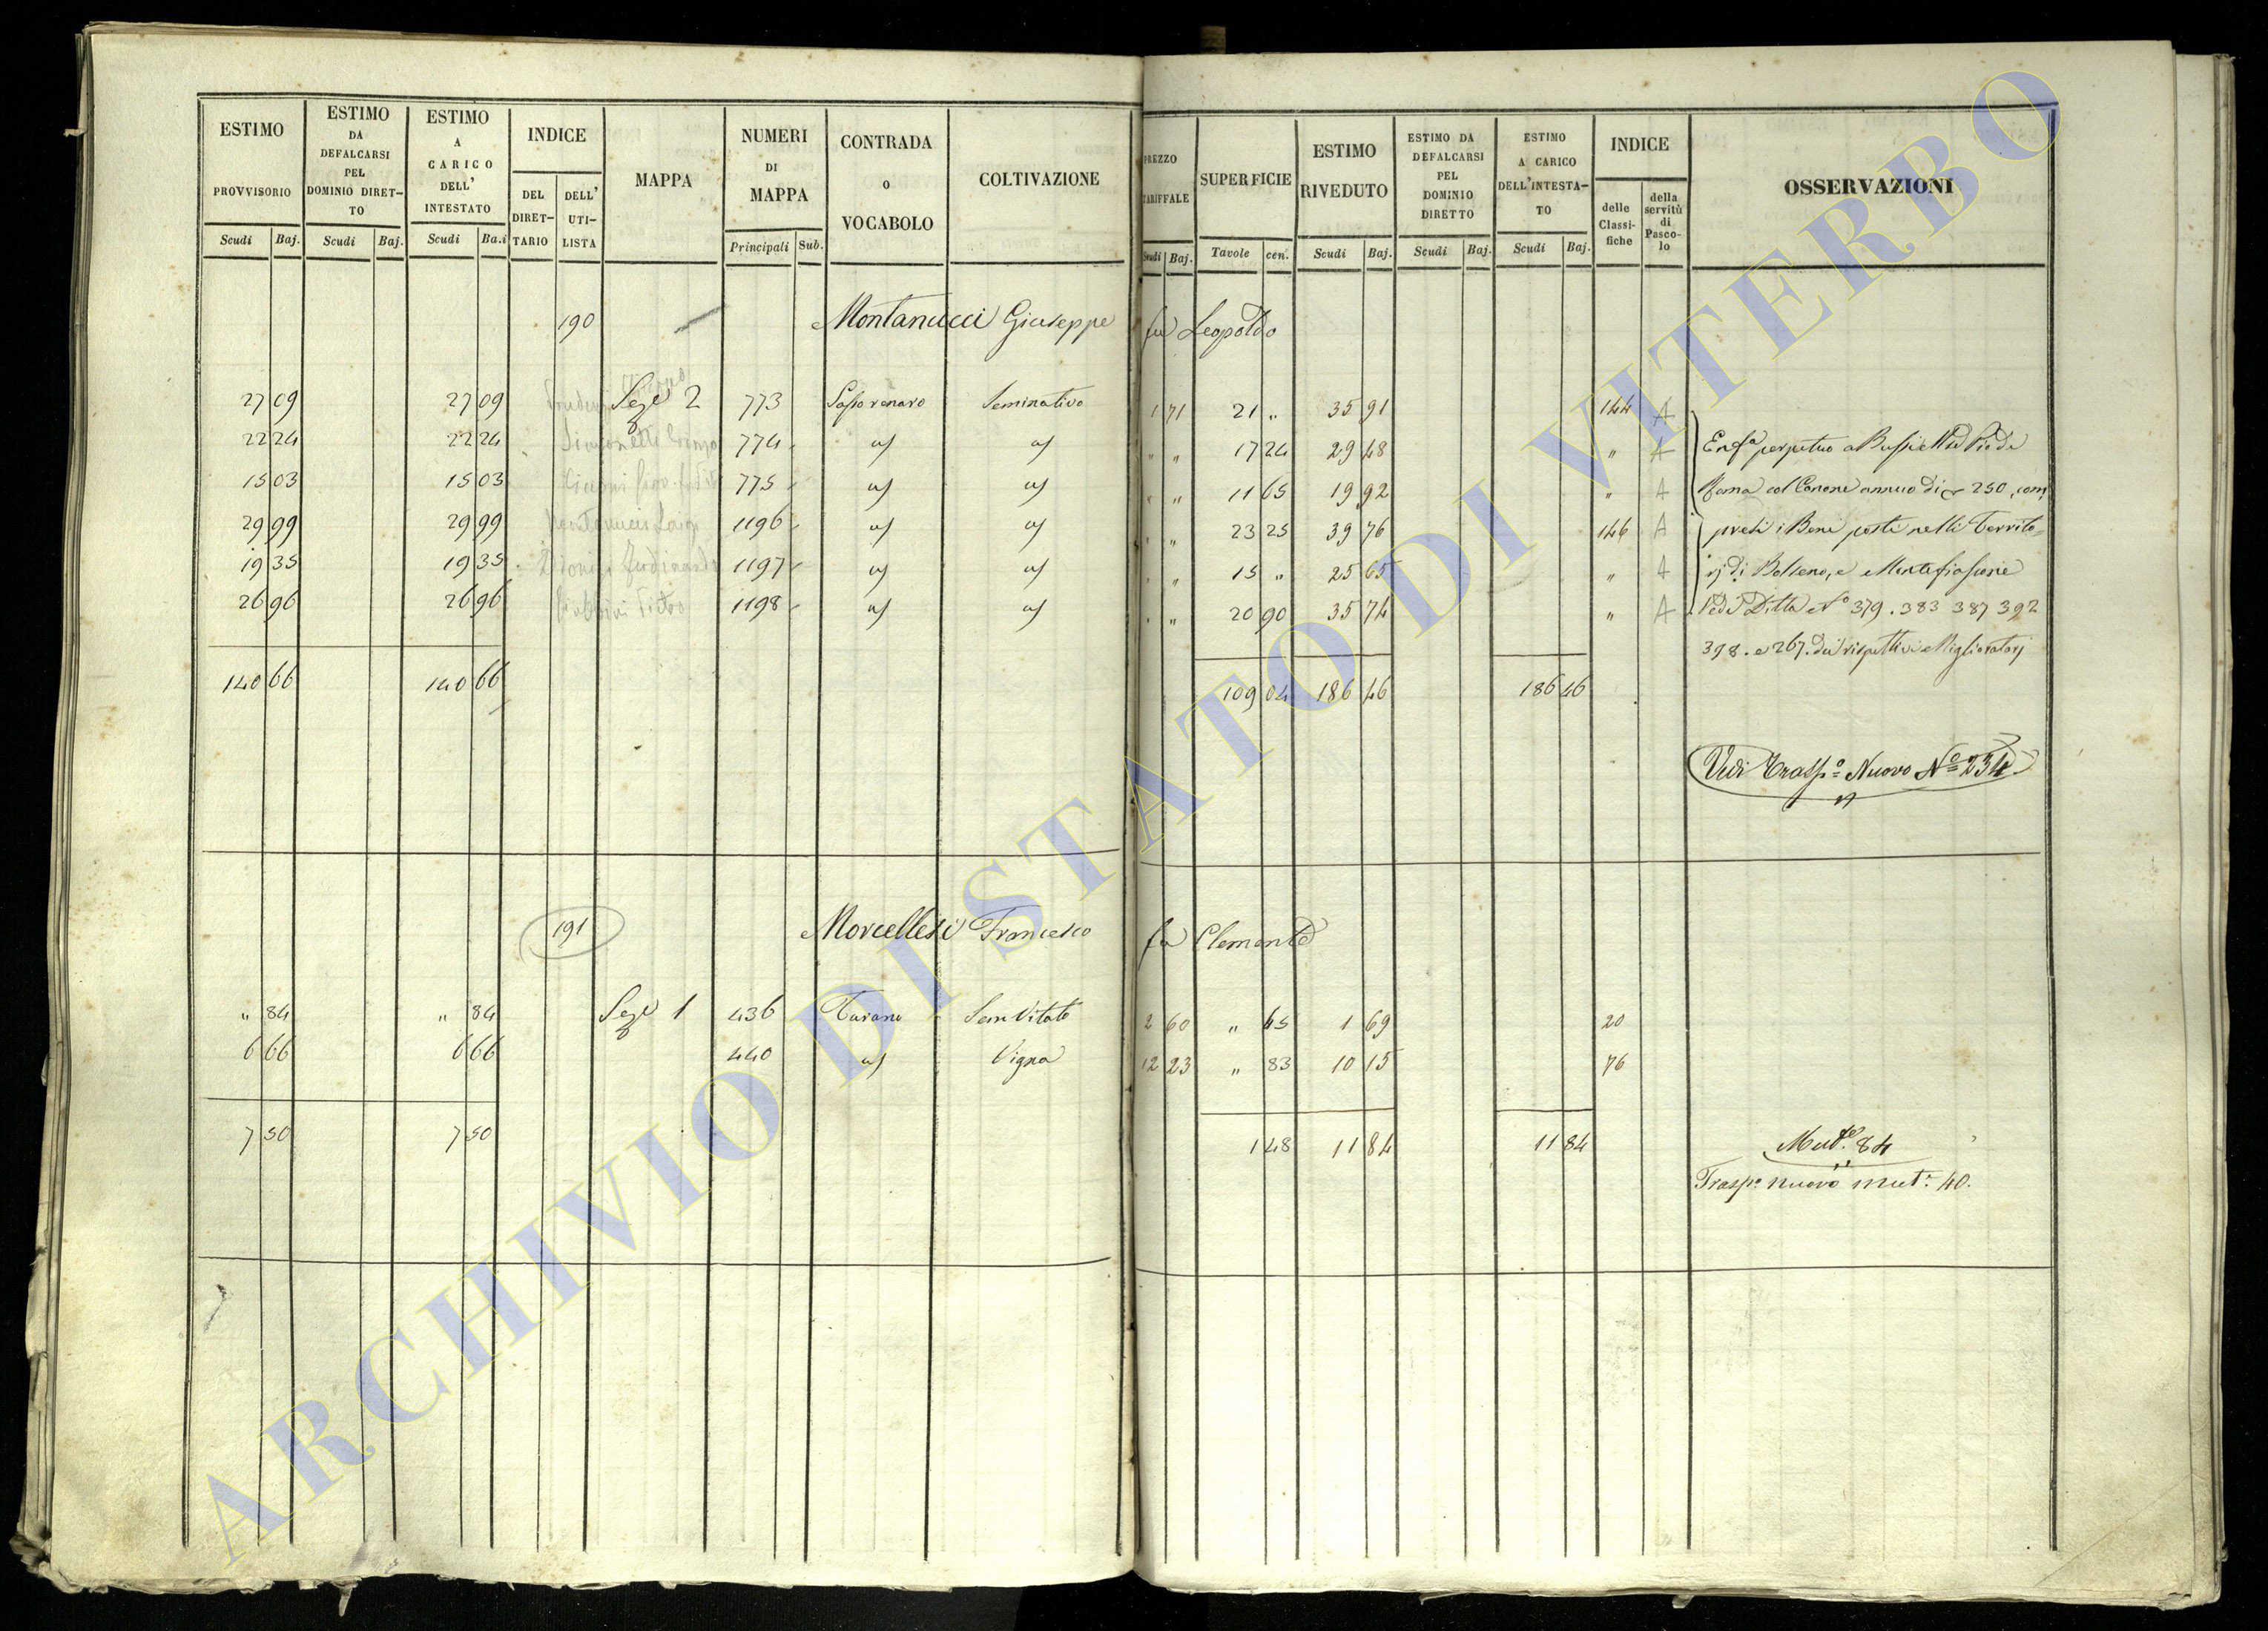 ESTIMO PROVVISORIO Scudi Baj.
ESTIMO DA DEFALCARSI PEL DOMINIO DIRET-TO Scudi Baj.
ESTIMO A CARICO DELL' INTESTATO Scudi Ba.i
INDICE DEL DIRET-TARIO DELL' UTI-LISTA
MAPPA
NUMERI DI MAPPA Principali Sub.
CONTRADA o VOCABOLO
COLTIVAZIONE
PREZZO TARIFFALE Scudi Baj.
SUPERFICIE Tavole cen.
ESTIMO RIVEDUTO Scudi Baj.
ESTIMO DA DEFALCARSI PEL DOMINIO DIRETTO Scudi Baj.
ESTIMO A CARICO DELL'INTESTA-TO Scudi Baj.
INDICE delle Classi-fiche della servitù di Pasco-lo
OSSERVAZIONI
190 Montanucci Giuseppe fu Leopoldo
27 09 27 09 Sez.e 2 773 Seminativo 1 71 21 " 35 91 144 A
22 24 22 24 774 " " 17 24 29 48 " A Enf.a perpetuo a
15 03 15 03 775 " " 11 65 19 92 " A Roma col Canone annuo di 250, com
29 99 29 99 1196 " " 23 25 39 76 146 A presi i Beni posti nelli Territo=
19 35 19 35 1197 " " 15 " 25 65 " A rj di Bolseno, e Montefiascone
26 96 26 96 1198 " " 20 90 35 74 " A Vedi Ditta N.o 379. 383 387 392
398. e 267. dei rispettivi Miglioratarj
140 66 140 66 109 04 186 46 186 46
Vedi Trasp.o Nuovo N.o 234
191 Morcellesi Francesco fu Clemente
" 84 " 84 Sez.e 1 436 Sem Vitato 2 60 " 65 1 69 20
6 66 6 66 440 Vigna 12 23 " 83 10 15 76
7 50 7 50 1 48 11 84 11 84 Mut.e 84
Trasp.o nuovo mut.e 40.
ARCHIVIO DI STATO DI VITERBO